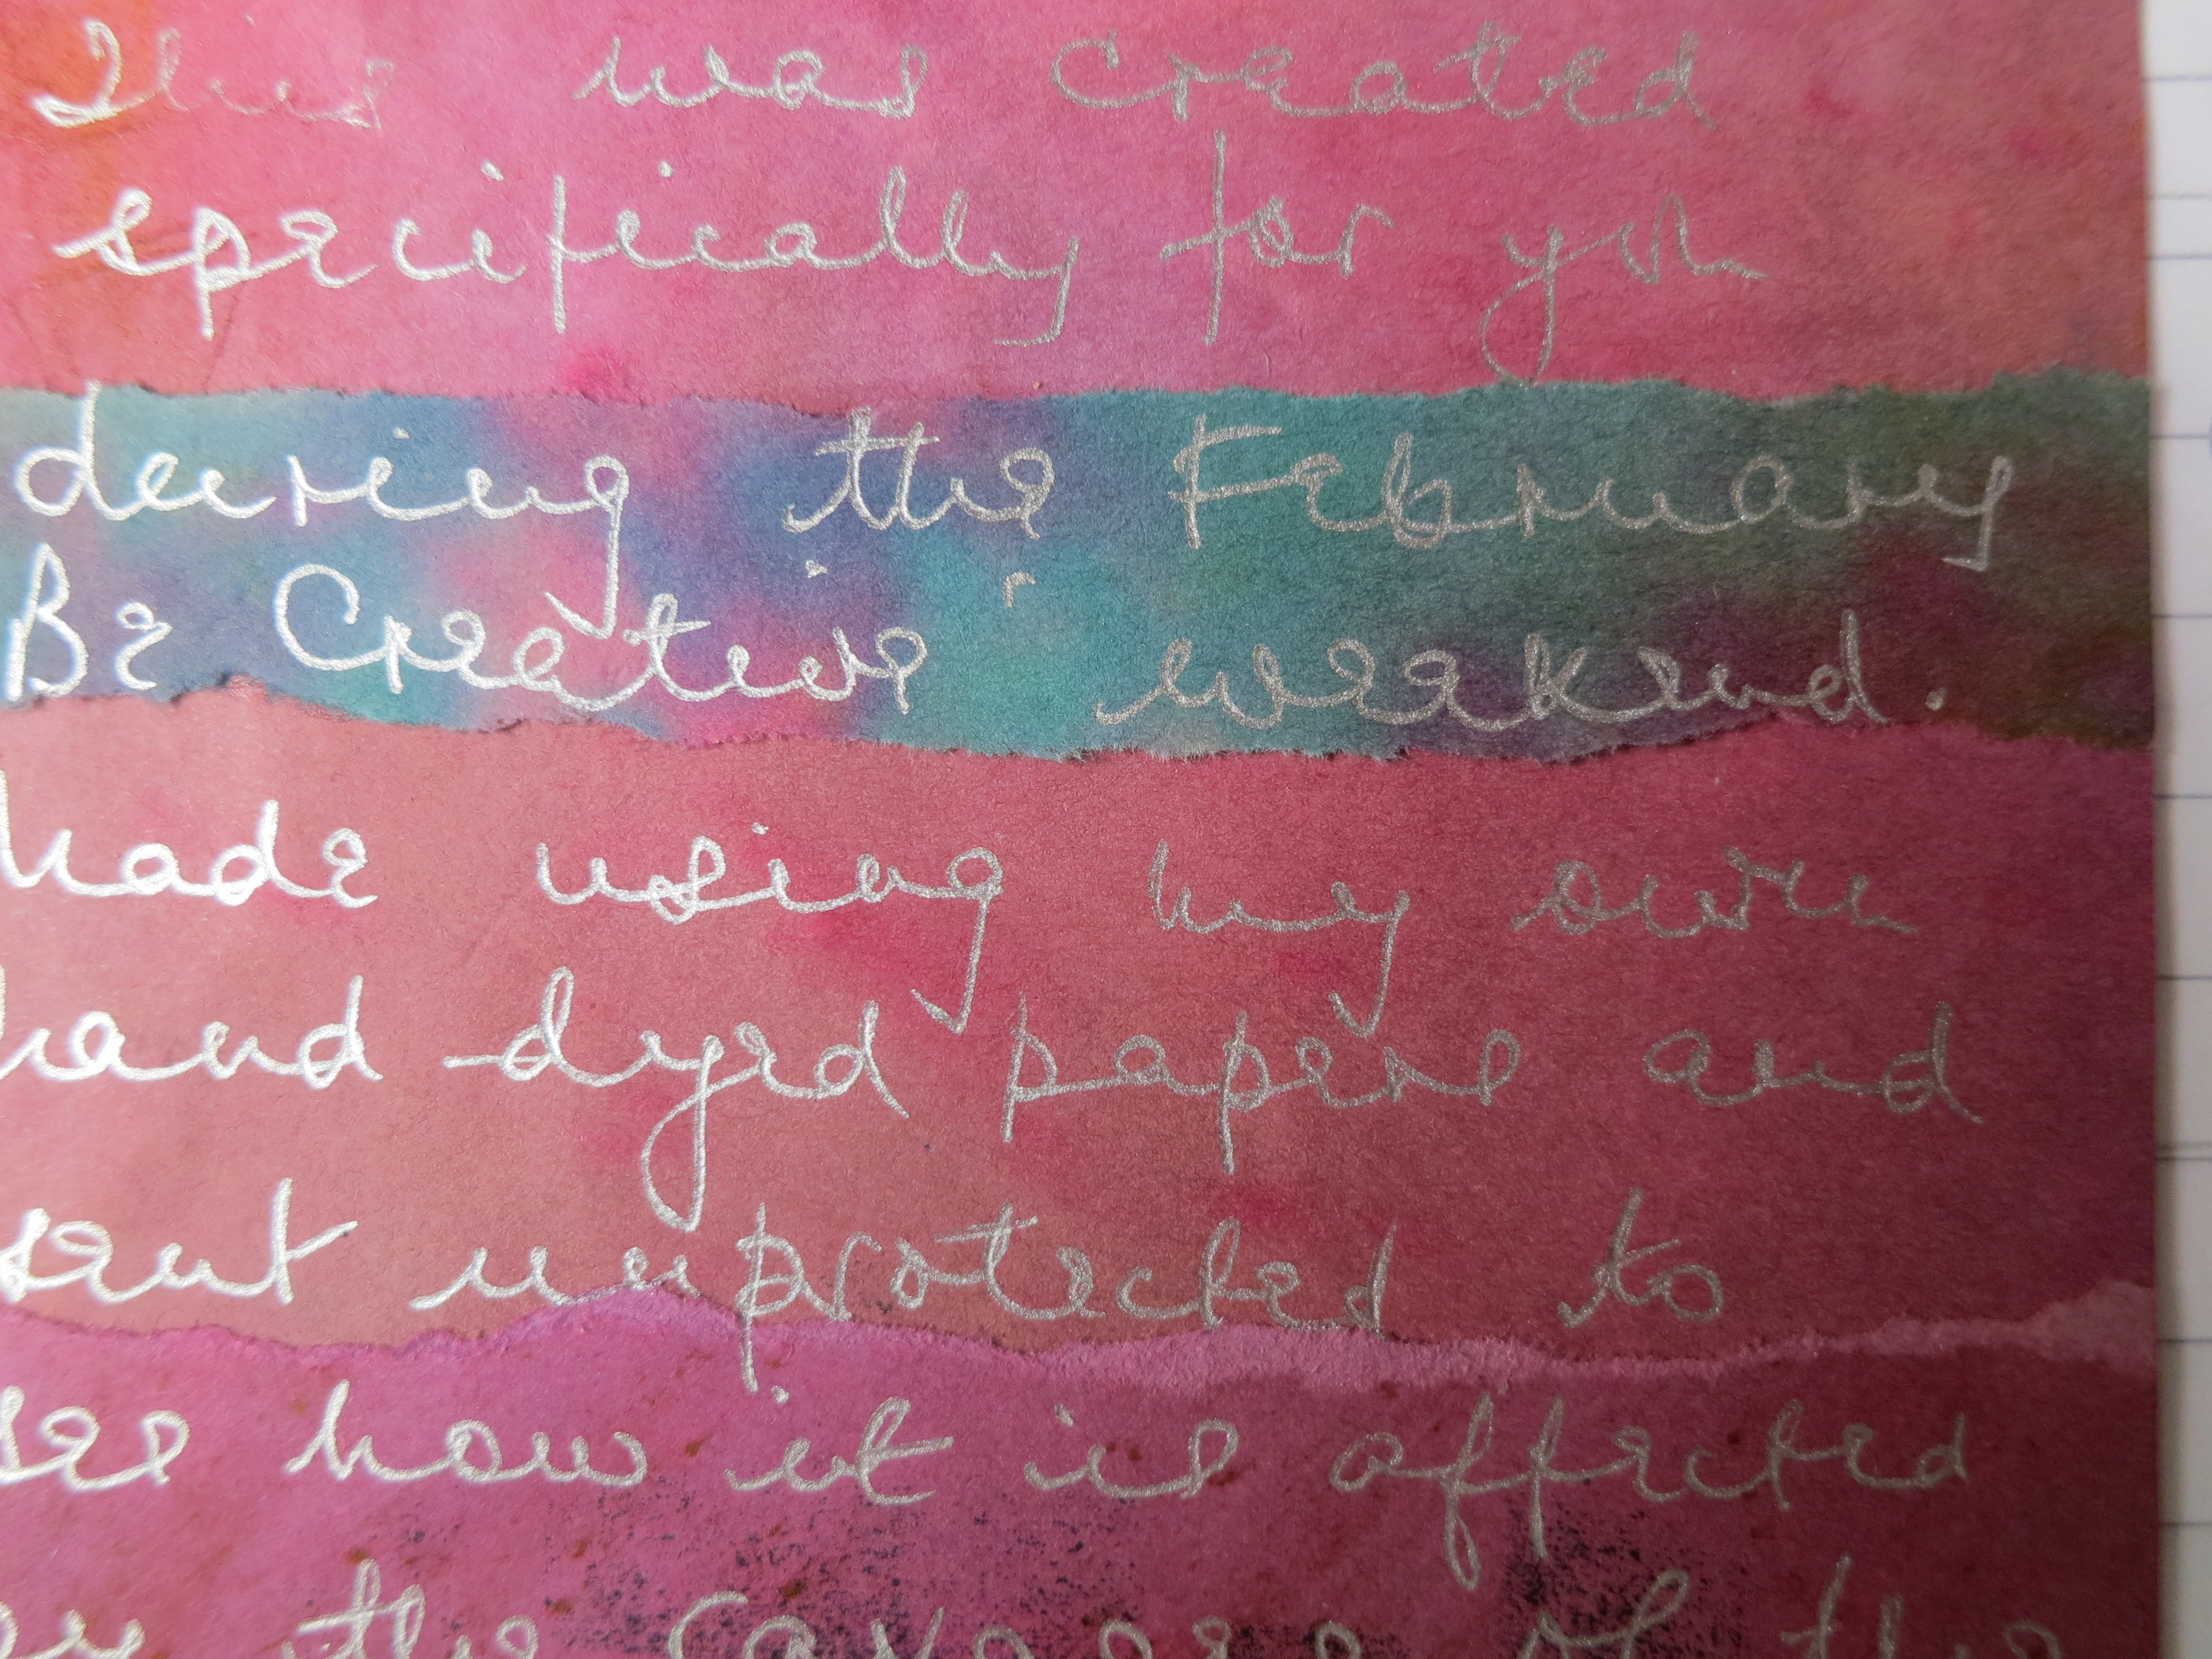 This was created
specifically for you
during the February
Be Creative weekend.
Made using my own
hand-dyed papers and
sent unprotected to
see how it is affected
by the ravages of the